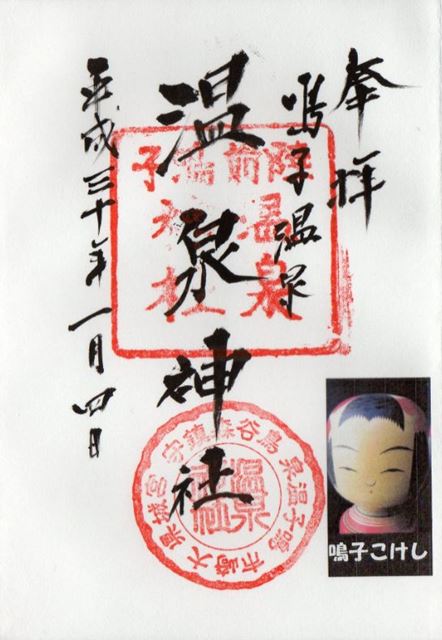 奉拝
鳴子温泉
温泉神社
平成三十年一月四日
陸前鳴子
温泉
神社
宮城県大崎市鳴子温泉鳥谷森鎮守
温泉神社
鳴子こけし